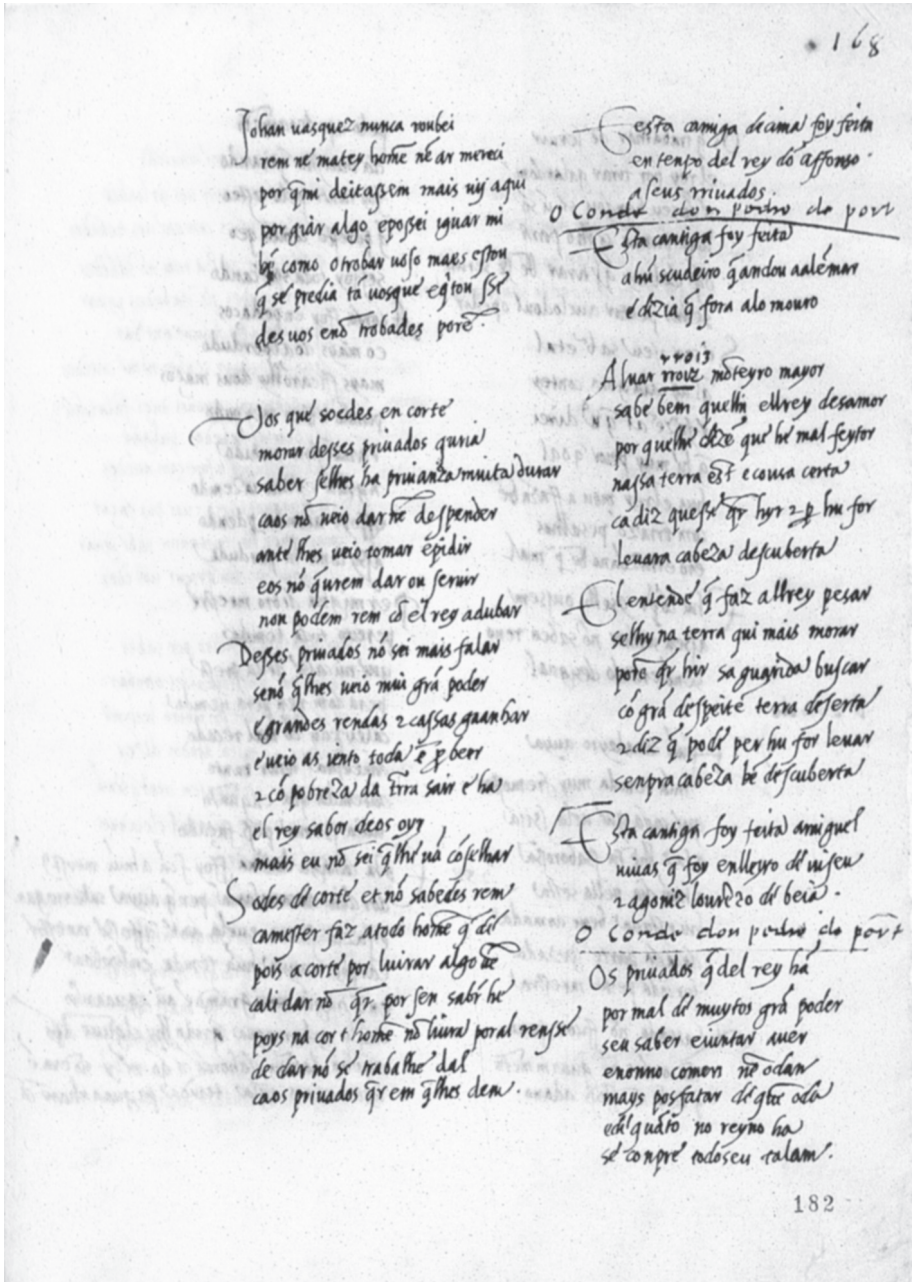 168
Johan uasquez nunca roubei
rem nẽ matey homẽ nẽ ar merci
por q̃mi deitassem mais uĩj aqui
por gãar algo eposei iguar mi
bẽ como otrobar uoso maes estou
q̃ sẽ predia tã uosque
des uos enõ trobades porẽ.
Uos que soedes en corte
morar desses priuados q̃ria
saber selhes ha priuanza muita durar
caos nõ ueio dar nẽ despender
ante lhes ueio tomar epidir
eos nõ q̃urem dar ou seruir
non podem rem cõ el rey adubar
Desses priuados nõ sei mais falar
senõ q̃lhes ueio mui grã poder
e grandes rendas 2 cassas guanhar
e ueio as iento toda
2 cõ pobreza da trra sair e ha
el rey sabor deos oyr
mais eu nõ sei q̃lhe uã cõselhar
Sodes de corte et nõ sabedes rem
camester faz atodo homẽ q̃ dẽ
pois a corte por liurar algo uẽ
cali dar nõ q̃r, por sen sabr hẽ
poys na cort homẽ nõ liura poral rensse
de dar nõ se trabalhe dal
caos priuados q̃r em q̃lhes dem.
Esta cantiga decima foy feita
en tempo del rey dõ affonso.
aseus priuados.
O Conde don pedro de port
Esta cantiga foy feita
ahũ scudeiro q̃ andou aalẽmar
e dizia q̃ fora alo mouro
Aluar rrouz mõteyro mayor
sabe bem quelhi ellrey desamor
por quelhe dizẽ que hé mal feytor
nassa terra est ecousa certa
ca diz quesse q̃r hyr 2 ꝑ hu for
leuara cabeza descuberta
El entẽde q̃ faz allrey pesar
selhy na terra qui mais morar
porẽ q̃r hir sa guarida buscar
cõ grã despeitẽ terra deserta
2 diz q̃ podẽ per hu for leuar
sempra cabeza bẽ descuberta
Esta cantiga foy feita amiguel
uiuas q̃ foy enlleyto de uiseu
2 agomez lourẽzo de beia.
O Conde don pedro de port
Os priuados q̃ del rey hã
por mal de muytos grã poder
seu saber eiuntar auer
enonno comen nẽ odan
mays posfatar de
edẽ quãto no reyno ha
sẽ conpre todoseu talam.
182